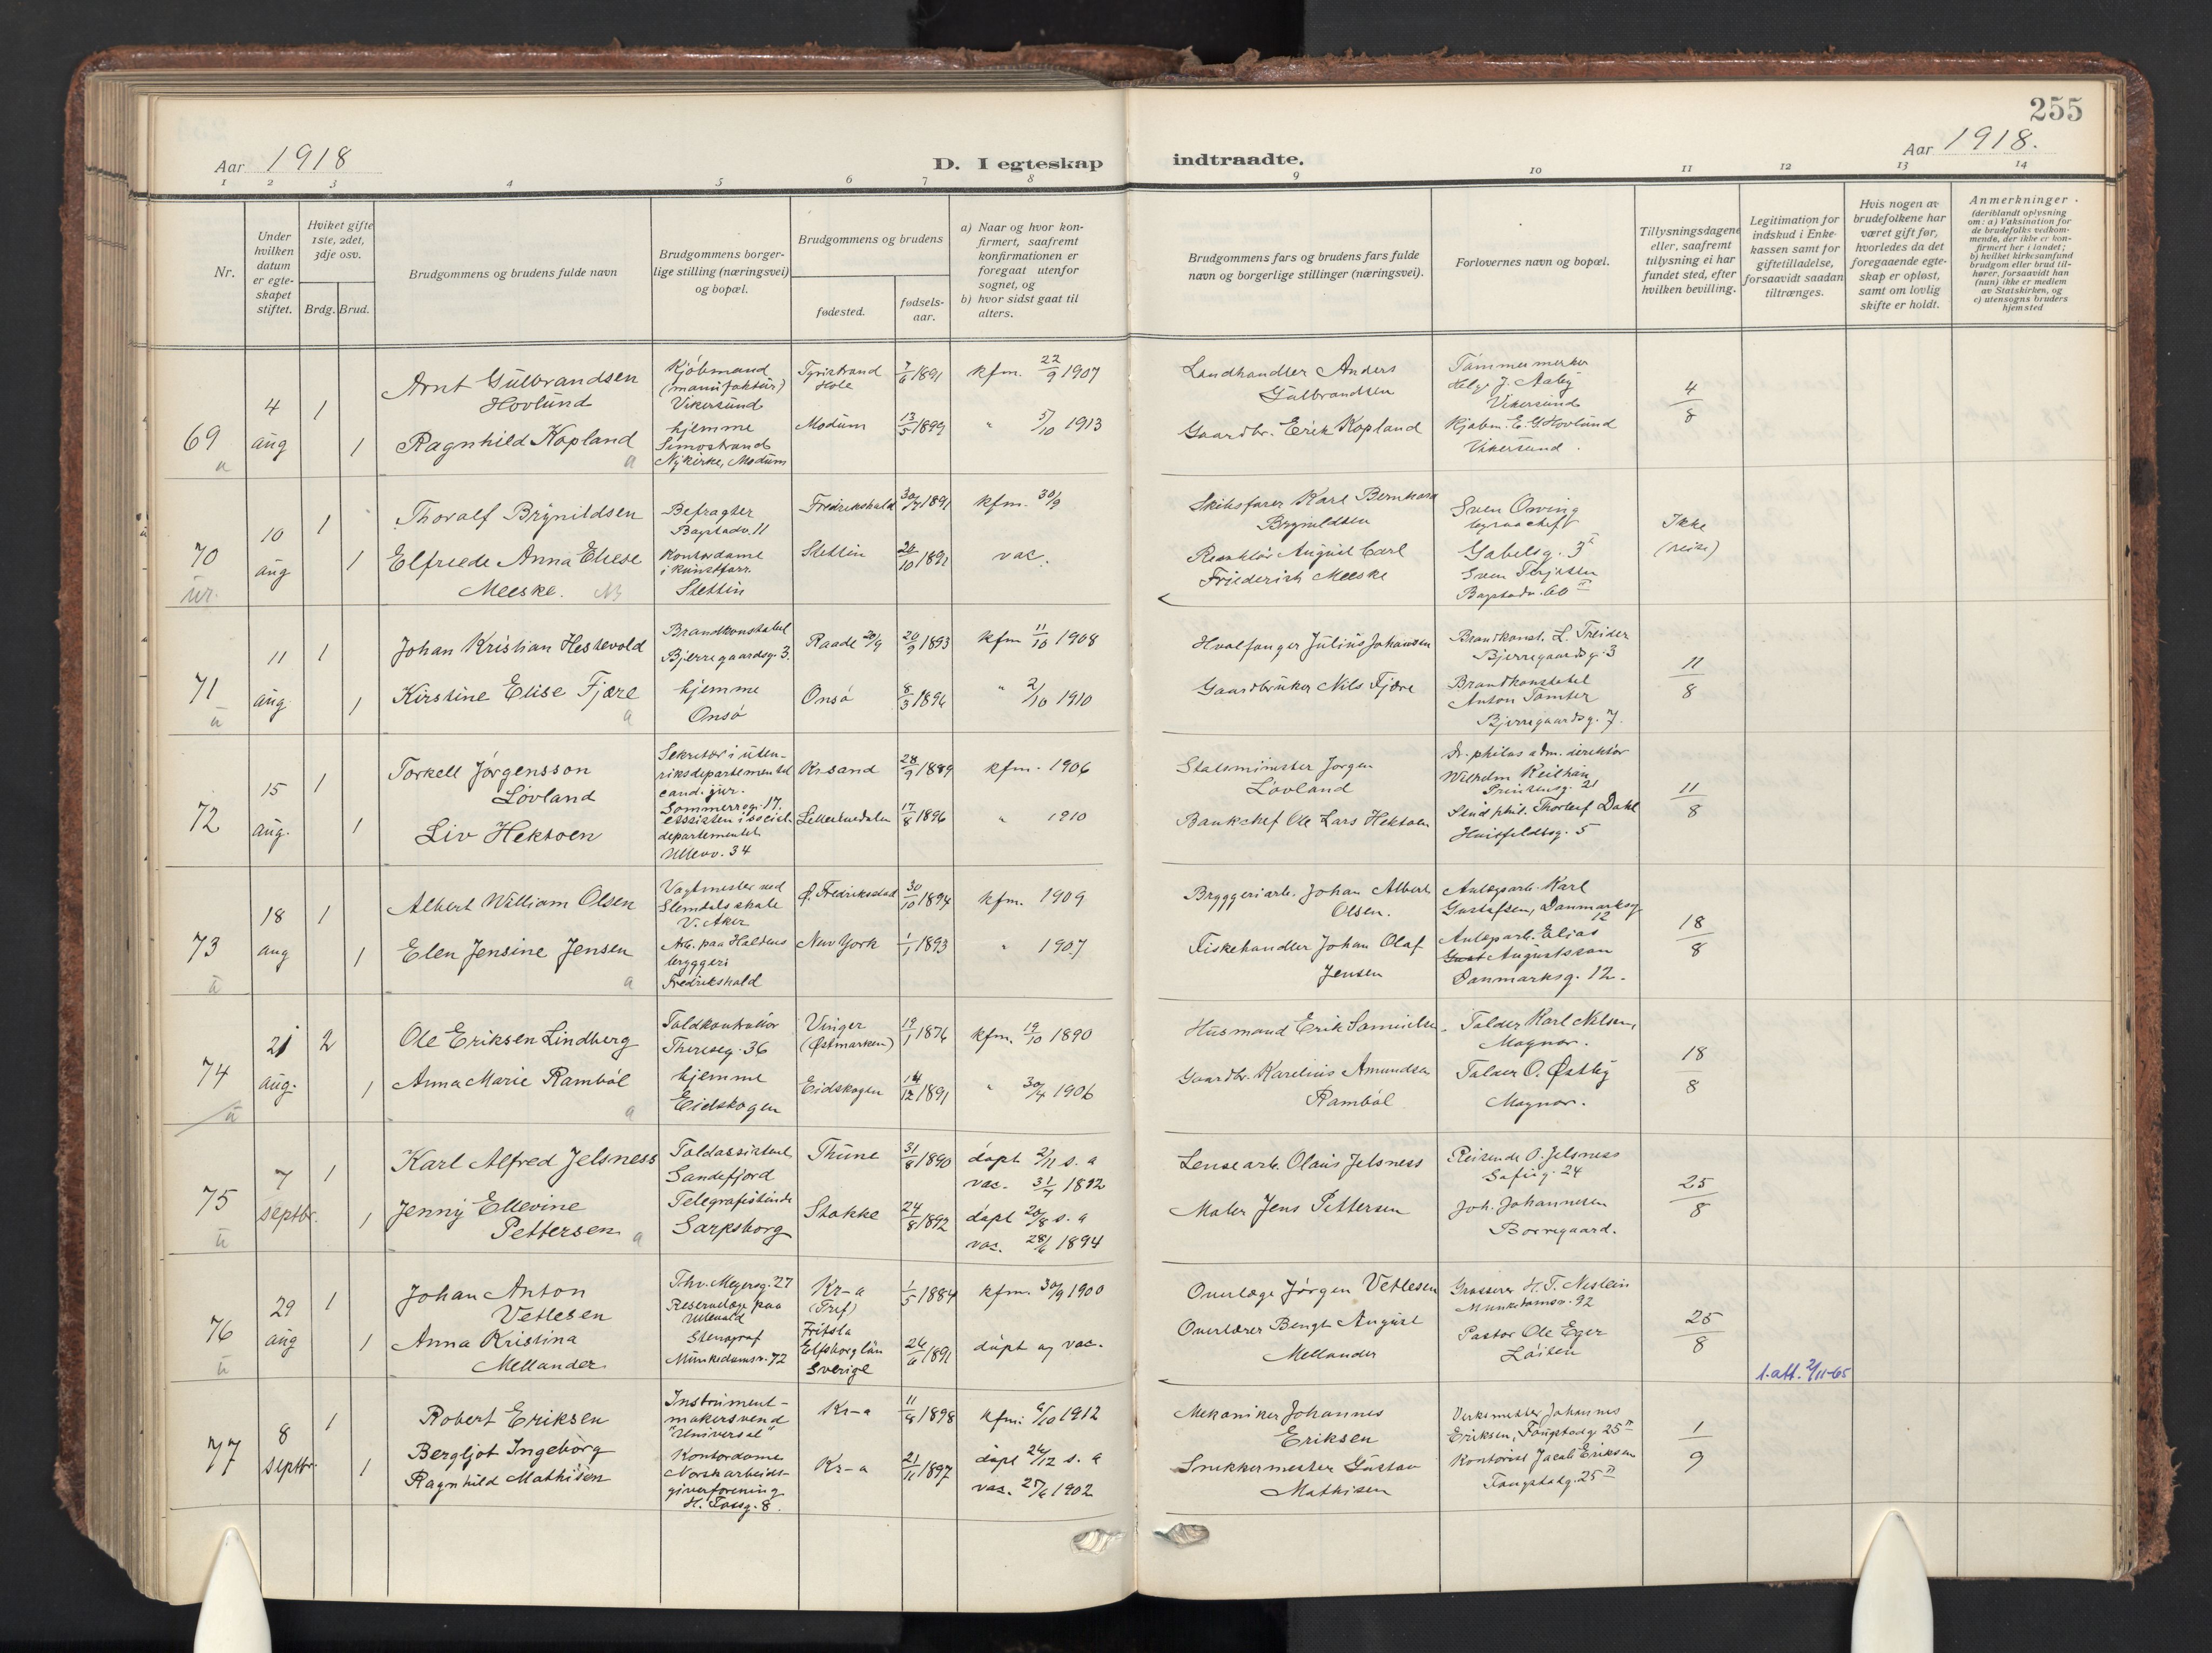 255
Aar 1918
D. I egteskap indtraadte.
Aar 1918.
1 2 3 4 5 6 7 8 9 10 11 12 13 14
Nr.
Under hvilken datum er egte-skapet stiftet.
Hviket gifte 1ste, 2det, 3dje osv.
Brdg. Brud.
Brudgommens og brudens fulde navn
Brudgommens borger-lige stilling (næringsvei) og bopæl.
Brudgommens og brudens
fødested.
fødsels-aar.
a) Naar og hvor kon-firmert, saafremt konfirmationen er foregaat utenfor sognet, og
b) hvor sidst gaat til alters.
Brudgommens fars og brudens fars fulde navn og borgerlige stillinger (næringsvei).
Forlovernes navn og bopæl.
Tillysningsdagene eller, saafremt tillysning ei har fundet sted, efter hvilken bevilling.
Legitimation for indskud i Enke-kassen samt for giftetilladelse, forsaavidt saadan tiltrænges.
Hvis nogen av brudefolkene har været gift før, hvorledes da det foregaaende egte-skap er opløst, samt om lovlig skifte er holdt.
Anmerkninger
(deriblandt oplysning om: a) Vaksination for de brudefolks vedkom-mende, der ikke er kon-firmert her i landet; b) hvilket kirkesamfund brudgom eller brud til-hører, forsaavidt han (hun) ikke er medlem av Statskirken, og c) utensogns bruders hjemsted
69
4 aug
1
1
Arnt Gulbrandsen
Hovlund
Ragnhild Kopland
a
Kjøbmand
(manufaktur)
Vikersund
hjemme
Simostrand
Nykirke, Modum
Tyristrand
Hole
Modum
7/6 1891
13/5 1899
kfm. 22/9 1907
" 5/10 1913
Landhandler Anders
Gulbrandsen
Gaardbr. Erik Kopland
Tømmermerker
Helge J. Aaby
Vikersund
Kjøbm. E. G. Hovlund
Vikersund.
4/8
70
10 aug
1
1
Thoralf Brynildsen
Elfriede Anna Eliese
Meeske.
Befragter
Bogstadv. 11
Kontordame
Stettin
Fredrikshald
Stettin
30/7 1891
kfm. 30/9
vac.
Skibsfører Karl Bernhard
Brynildsen
August Carl
Friederich Meeske
Sven Orving
Gabelsg. 3
Sven
Bogstadv. 60 II
Ikke
(reise)
71
11 aug
1
1
Johan Kristian Hestevold
Kirstine Elise Fjære
a
Brandkonstabel
Bjerregaardsg. 3.
hjemme
Onsø
Raade 20/9
Onsø
20/9 1893
8/3 1896
kfm 11/10 1908
" 2/10 1910
Hvalfanger Julius Johansen
Gaardbruker Nils Fjære
Brandkonst. L. Treider
Bjerregaardsg. 3
Brandkonstabel
Anton Tomter
Bjerregaardsg. 7.
11/8
72
15 aug.
1
1
Torkell Jørgensson
Løvland
Liv Hektoen
Sekretær i uten-
riksdepartementet
cand. jur.
Sommerrog. 17.
assistent i social-
departementet
Ullevv. 34
Kr.sand
28/9 1889
17/8 1896
kfm. 1906
" 1910
Statsminister Jørgen
Løvland
Bankchef Ole Lars Hektoen
Dr. philos adm. direktør
Wilhelm Keilhau
Prinsensg. 21
Stud. phil. Thorleif Dahl
Huitfeldtsg. 5
11/8
73
18 aug
1
1
Albert William Olsen
Elen Jensine Jensen
a
Vagtmester ved
Slemdals skole
V. Aker
Arb. paa Haldens
bryggeri
Fredrikshald
Ø. Fredrikstad
New York
30/10 1894
1/1 1893
kfm. 1909
" 1907
Bryggeriarb. Johan Albert
Olsen.
Fiskehandler Johan Olaf
Jensen
Anlægsarb. Karl
Gustafsen, Danmarksg
12
Anlægsarb. Elias
Gust Augustsson
Danmarksg. 12.
18/8
74
21 aug.
2
1
Ole Eriksen Lindberg
Anna Marie Rambøl
a
Toldkontrollør
Theresesg. 36
hjemme
Eidskogen
Vinger
(Østmarken)
Eidskogen
19/1 1876
14/12 1891
kfm. 19/10 1890
" 30/4 1906
Husmand Erik Samuelsen
Gaardbr. Karelius Amundsen
Rambøl
Tolder Karl Nilsen,
Magnor.
Tolder O. Østby
Magnor.
18/8
75
7 septbr.
1
1
Karl Alfred Jelsness
Jenny Ellevine
Pettersen
a
Toldassistent
Sandefjord
Telegrafistinde
Sarpsborg
Thune
Stokke
31/8 1890
24/8 1892
døpt 2/11 s. a
vac. 31/7 1892
døpt 20/8 s. a
vac. 28/6 1894
Lensearb. Olaus Jelsness
Maler Jens Pettersen
Reisende O. Jelsness
Sofieg. 24
Joh. Johannesen
Borregaard.
25/8
76
29 aug
1
1
Johan Anton
Vetlesen
Anna Kristina
Mellander
Thv. Meyersg. 27
Reservelæge paa
Ullevaal
Stenograf
Munkedamsv. 72
Kr-a
(Tref)
Fritsla
Elfsborg län
Sverige
1/5 1884
26/6 1891
kfm. 30/9 1900
døpt og vac.
Overlæge Jørgen Vetlesen
Overlærer Bengt August
Mellander
Grosserer H. T. Neslein
Munkedamsv. 92
Pastor Ole Eger
Løiten
25/8
1. att. 2/11-65
77
8 septbr.
1
1
Robert Eriksen
Bergljot Ingeborg
Ragnhild Mathisen
Instrument-
makersvend
"Universal"
Kontordame
Norsk arbeids-
giverforening
H. Fossg. 8.
Kr-a
Kr-a
11/8 1898
21/11 1897
kfm: 6/10 1912
døpt 26/12 s. a
vac. 27/6 1902
Mekaniker Johannes
Eriksen
Snekkermester Gustav
Mathisen
Verksmester Johannes
Eriksen, Fougstadg. 25 II
Kontorist Jacob Eriksen
Fougstadg. 25 II
1/9